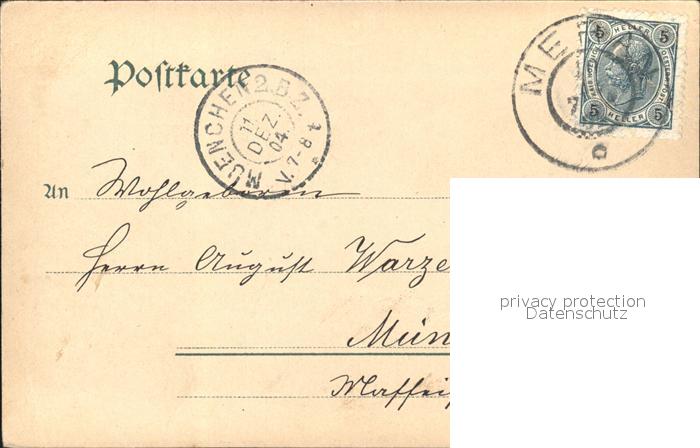 Postkarte
MUENCHEN 2. B.Z. 1
11
DEZ.
04.
V. 7-8
ME
5 HELLER 5
5 HELLER 5
An Wohlgeboren
Herrn August Warze
Mün
Maffei
privacy protection
Datenschutz